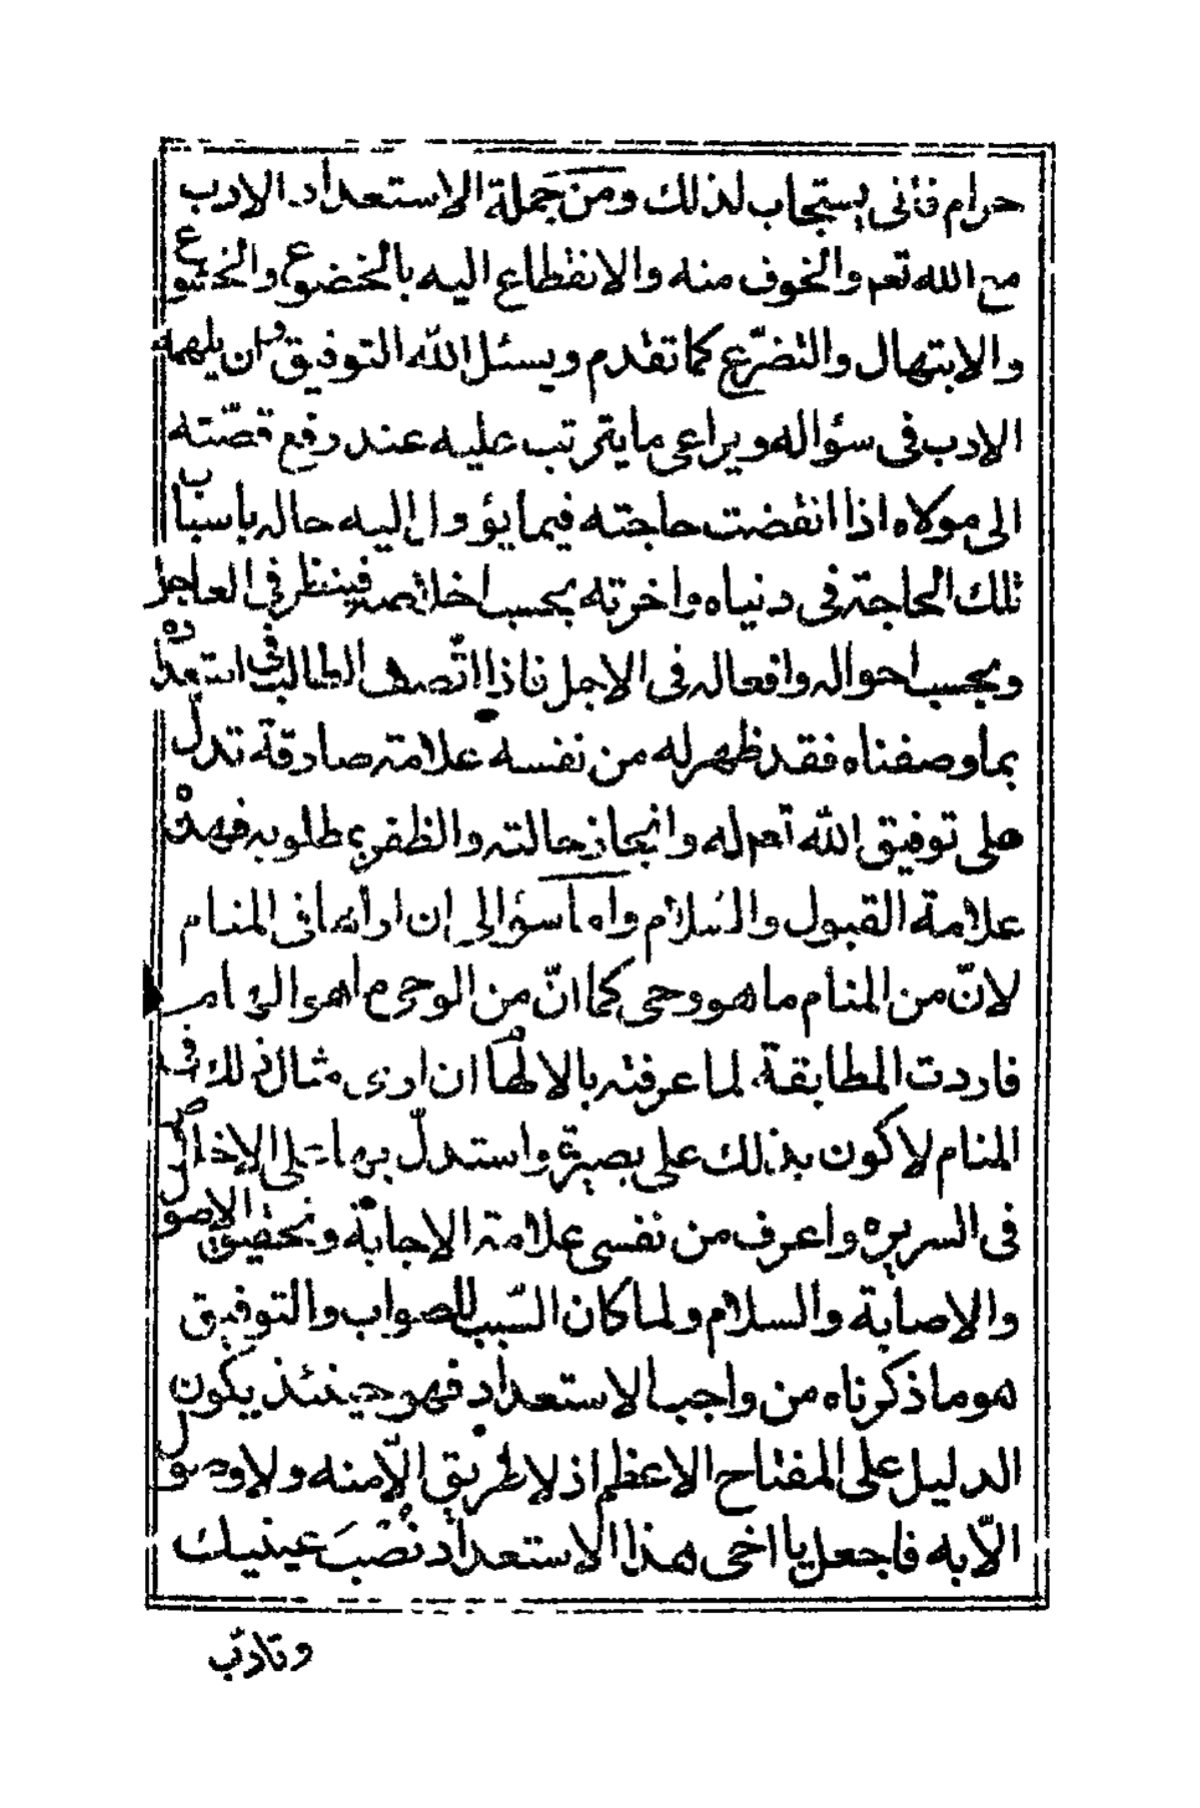 حرام فأنى يستجاب لذلك ومن جملة الاستعداد الادب
مع الله تعم والخوف منه والانقطاع اليه بالخضوع والخشوع
والابتهال والتضرّع كما تقدم ويسئل الله التوفيق وان يلهمه
الادب فى سؤاله ويراعى ما يترتب عليه عند رفع قصّته
الى مولاه اذا انقضت حاجته فيما يؤول اليه حاله باسباب
تلك الحاجة فى دنياه واخرته بحسب اخلاصه فينظر فى العاجل
وبحسب احواله وافعاله فى الاجل فاذا اتّصف الطالب فى استعداده
بما وصفناه فقد ظهر له من نفسه علامة صادقة تدلّ
على توفيق الله تعم له وانجاز حالته والظفر بمطلوبه فهذه
علامة القبول والسلام واما سؤالى ان اراها فى المنام
لانّ من المنام ما هو وحى كما انّ من الوحى ما هو الهام
فاردت المطابقة لما عرفته بالالهام ان ارى مثال ذلك فى
المنام لاكون بذلك على بصيرة واستدلّ بها على الاخلاص
فى السريره واعرف من نفسى علامة الاجابة وتحقيق الاصول
والاصابة والسلام ولما كان السّبب للصواب والتوفيق
هو ما ذكرناه من واجب الاستعداد فهو حينئذ يكون
الدليل على المفتاح الاعظم اذ لا طريق الّا منه ولا وصول
الّا به فاجعل يا اخى هذا الاستعداد نُصْبَ عينيك
وتادّب